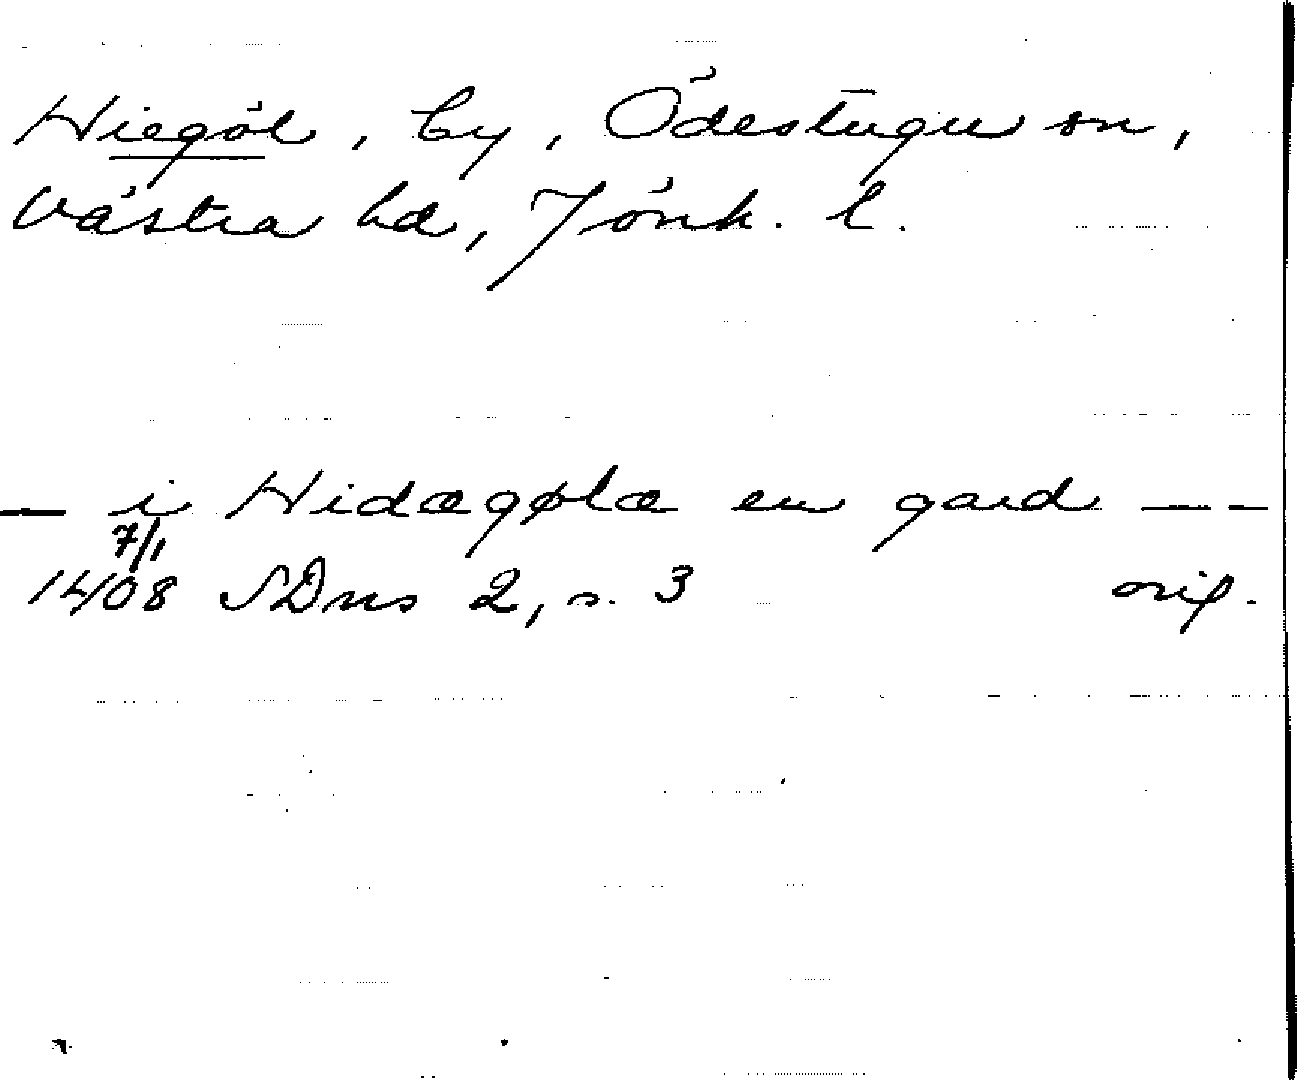 Hiegöl, by, Ödestugu sn,
Västra hd, Jönk. l.
— i Hidægøla en gard — –
7/1
1408 SDns 2, s. 3 orig.